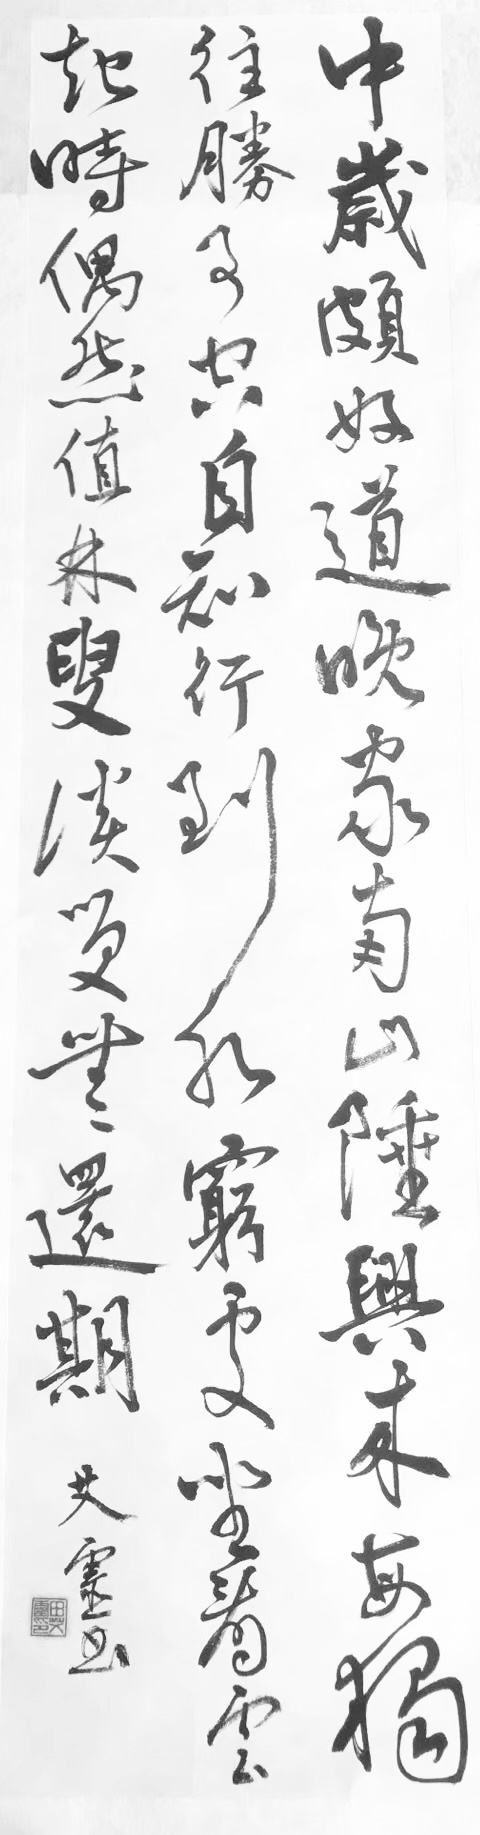 中歲頗好道晚家南山陲興来每獨
往勝事空自知行到水窮處坐看雲
起時偶然值林叟談笑無還期
艾靈书